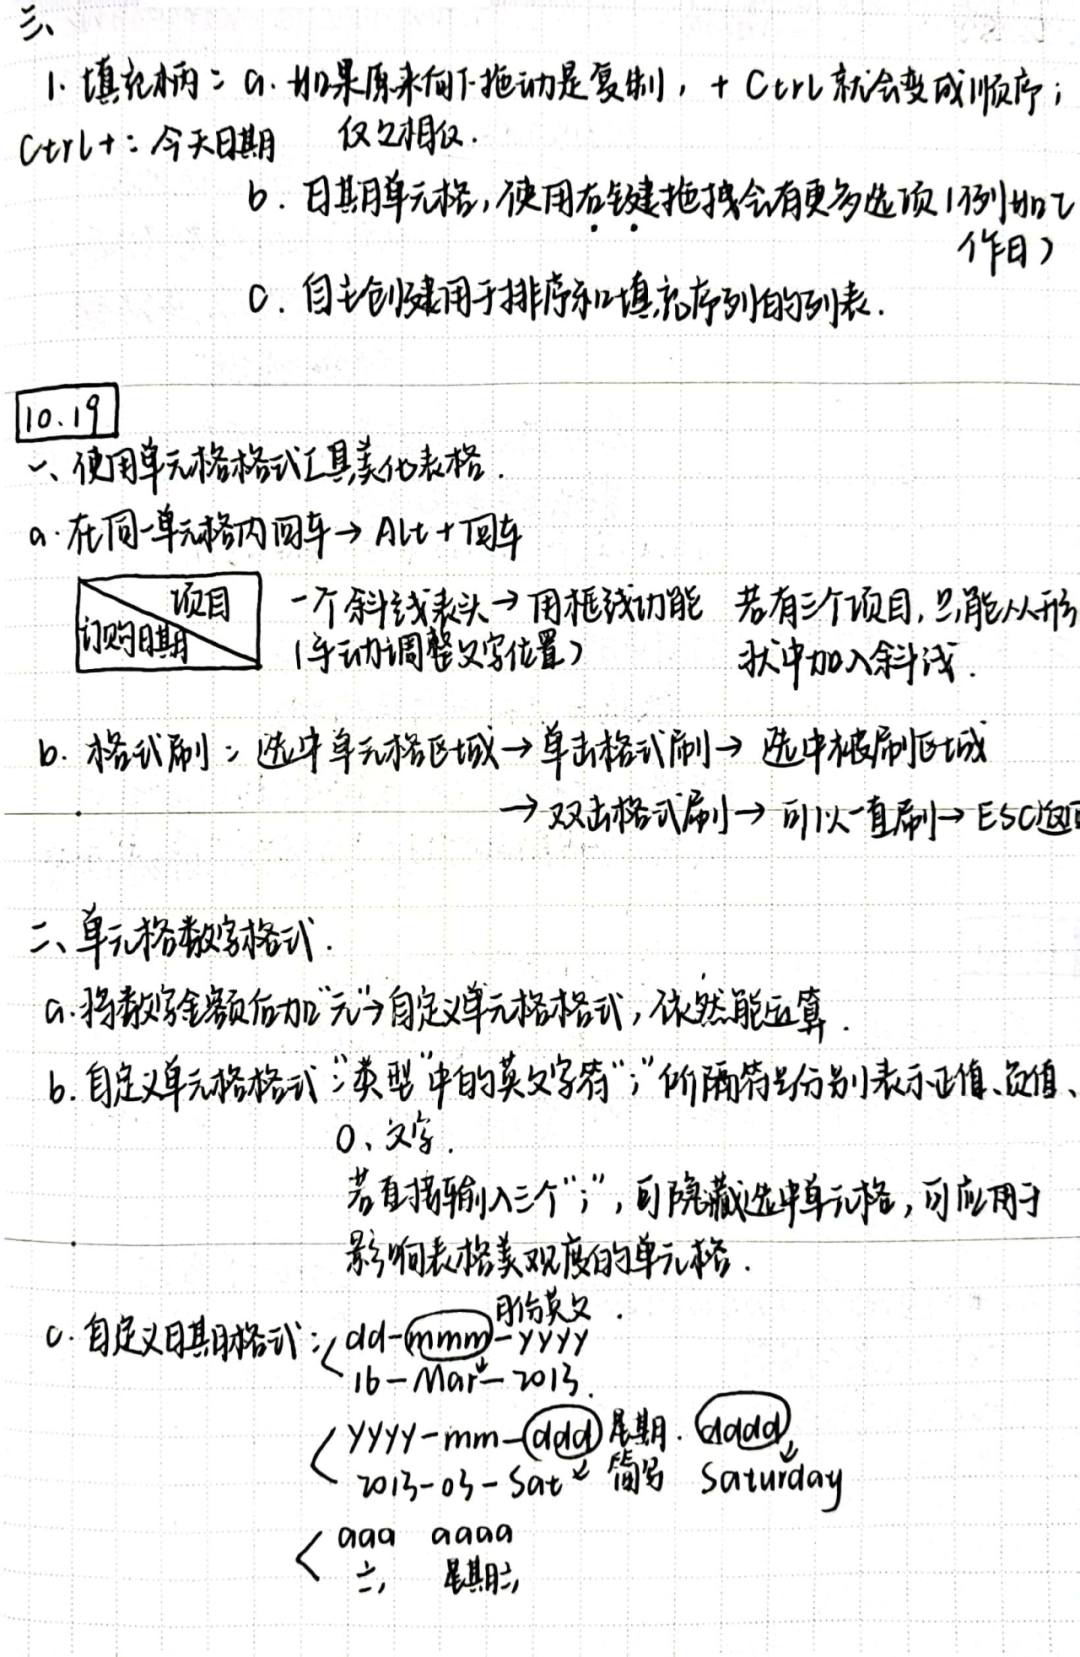 三、
1. 填充柄：a. 如果原来向下拖动是复制，+ Ctrl 就会变成顺序；
Ctrl+：今天日期 仅之相仅.
b. 日期单元格，使用右键拖拽会有更多选项（例如工
作日）
c. 自主创建用于排序和填充序列的列表.
10.19
一、使用单元格格式工具美化表格.
a. 在同一单元格内回车→ Alt + 回车
项目
订购日期
一个斜线表头→ 用框线功能 若有三个项目，只能从形
（手动调整文字位置） 状中加入斜线.
b. 格式刷：选中单元格区域→单击格式刷→ 选中被刷区域
→双击格式刷→ 可以一直刷→ ESC返回
二、单元格数字格式.
a. 将数字金额后加"元"→自定义单元格格式，依然能运算.
b. 自定义单元格格式："类型"中的英文字符";"所隔符号分别表示正值、负值、
0、文字.
若直接输入三个";"，可隐藏选中单元格，可应用于
影响表格美观度的单元格.
月份英文.
c. 自定义日期格式：dd-mmm-yyyy
16-Mar-2013.
yyyy-mm-ddd 星期. dddd
2013-03-Sat 简写 Saturday
aaa aaaa
六, 星期六,